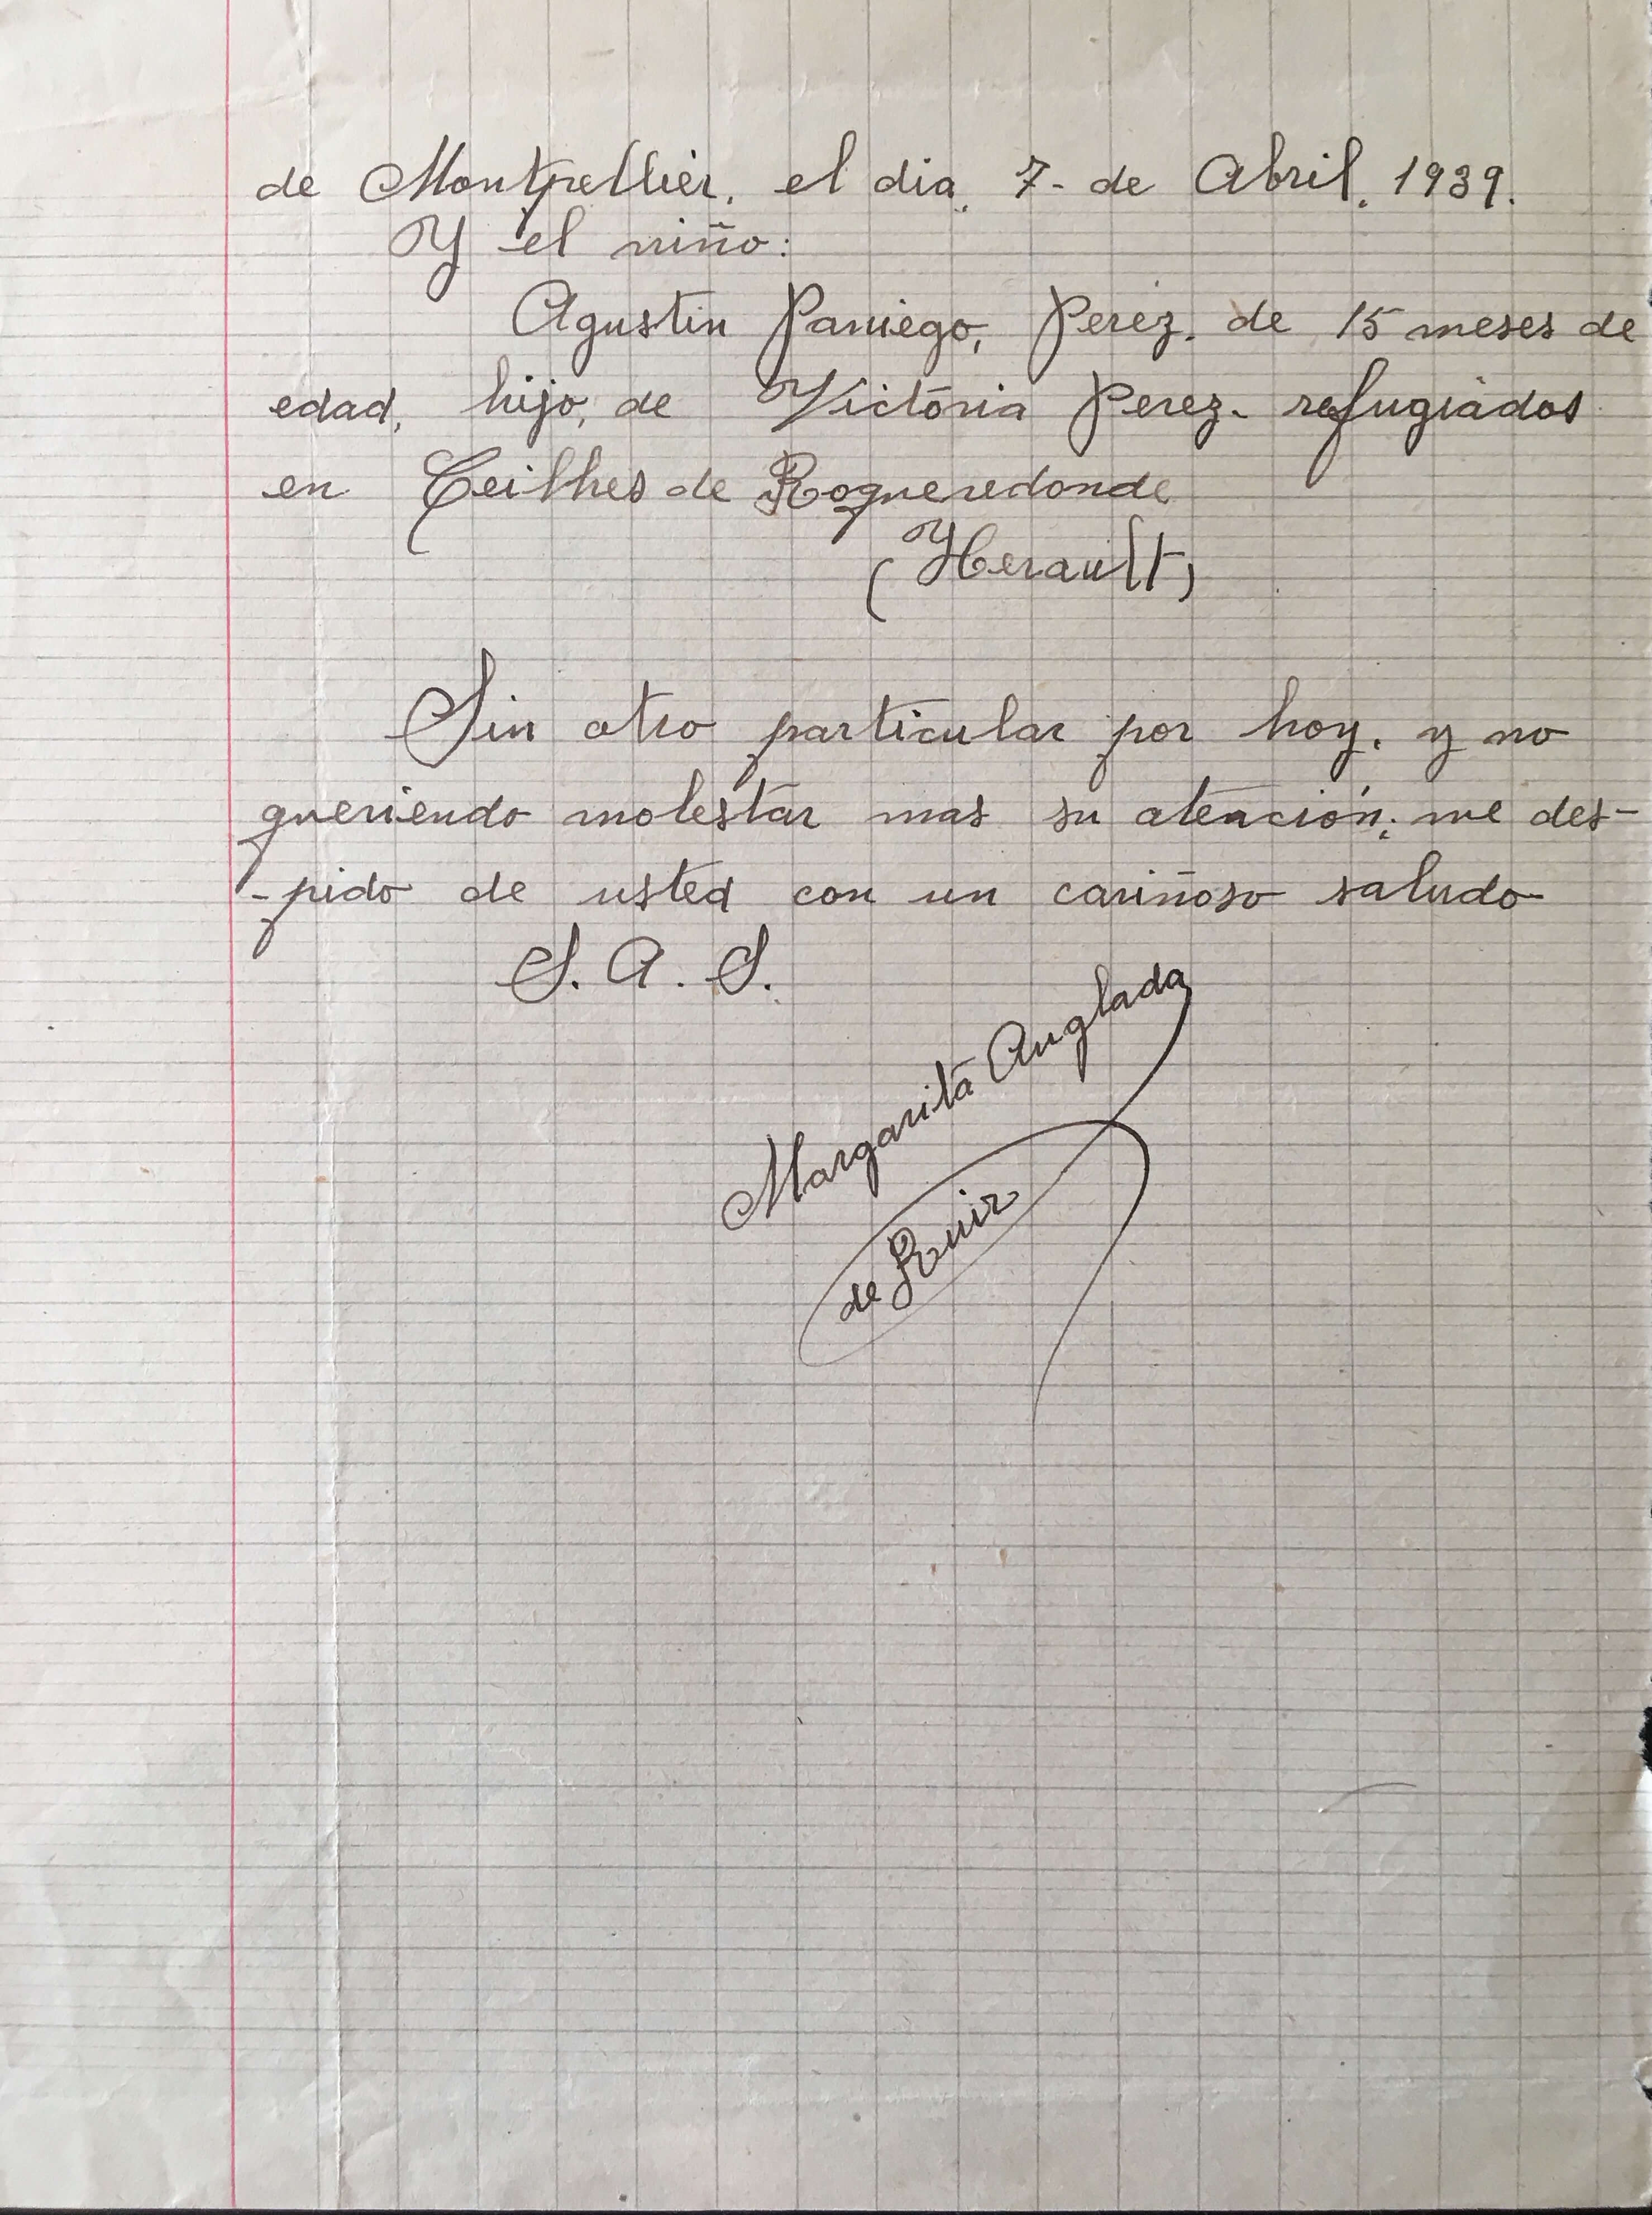 de Montpellier, el dia, 7- de Abril, 1939.
Y el niño:
Agustin Paniego, Perez. de 15 meses de
edad, hijo, de Victoria Perez- refugiados
en Ceilhes de Roqueredonde
(Herault)
Sin otro particular por hoy. y no
queriendo molestar mas su atención; me des-
-pido de usted con un cariñoso saludo
S. A. S.
Margarita Anglada
de Ruiz